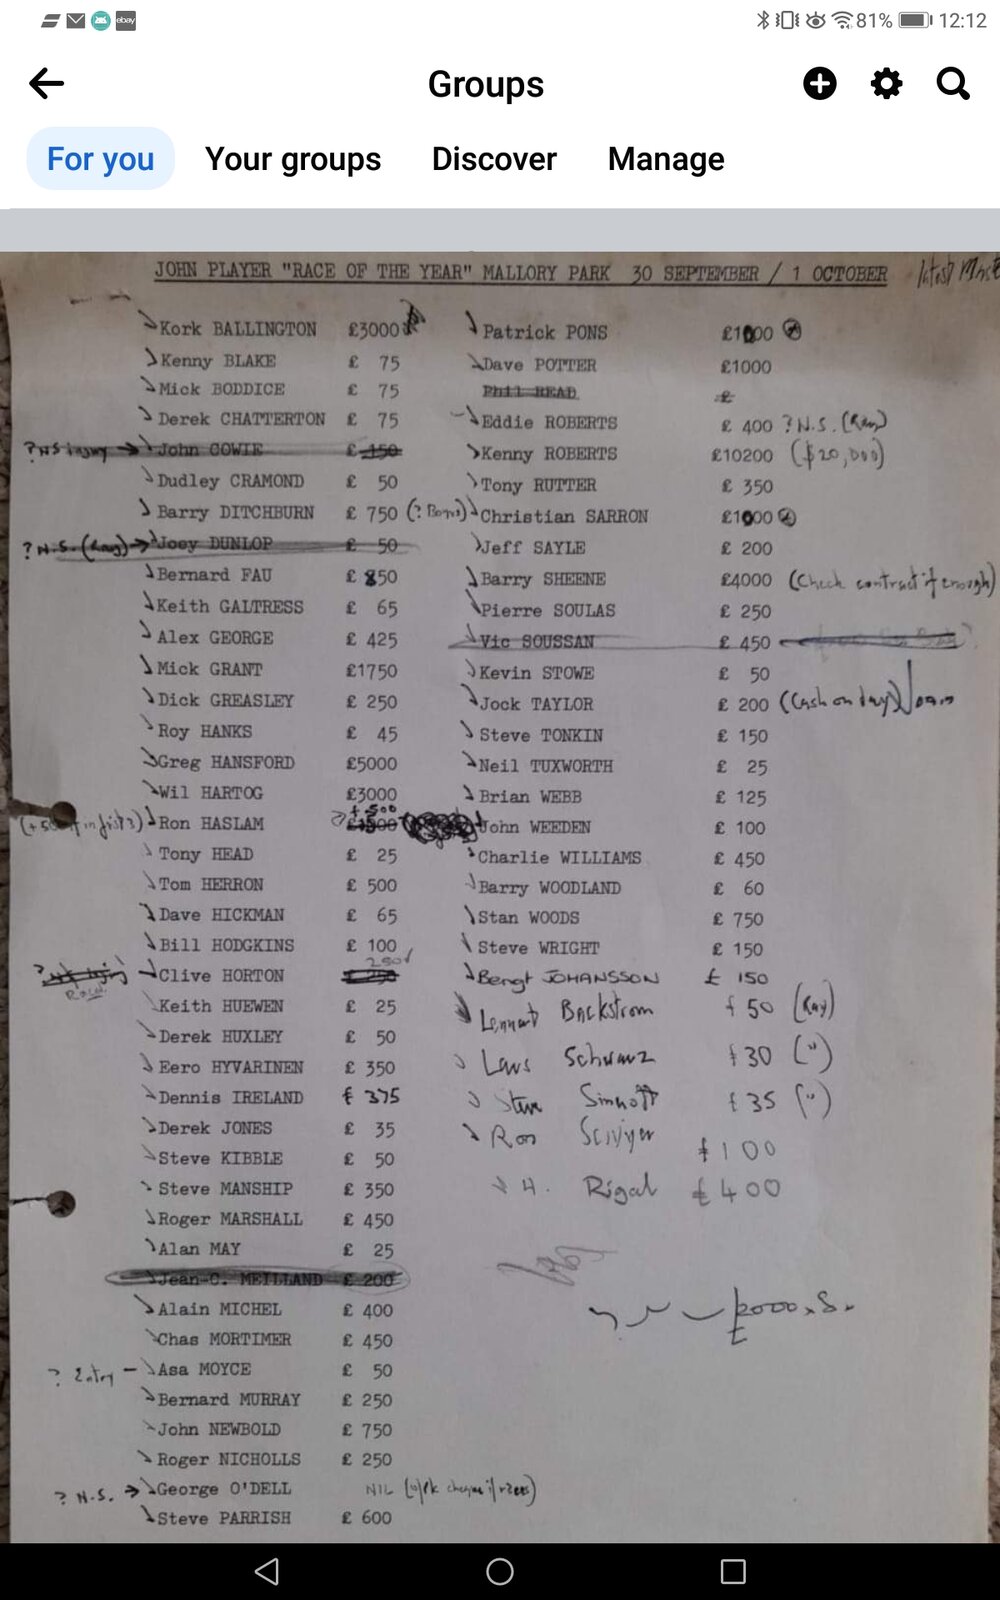 ebay
81% 12:12
Groups
For you Your groups Discover Manage
JOHN PLAYER "RACE OF THE YEAR" MALLORY PARK 30 SEPTEMBER / 1 OCTOBER latest
Kork BALLINGTON £3000
Kenny BLAKE £ 75
Mick BODDICE £ 75
Derek CHATTERTON £ 75
? NS injury → John COWIE £ 150
Dudley CRAMOND £ 50
Barry DITCHBURN £ 750 (?
? N.S. (Ray) → Joey DUNLOP £ 50
Bernard FAU £ 850
Keith GALTRESS £ 65
Alex GEORGE £ 425
Mick GRANT £1750
Dick GREASLEY £ 250
Roy HANKS £ 45
Greg HANSFORD £5000
Wil HARTOG £3000
Ron HASLAM £1500 + 500
Tony HEAD £ 25
Tom HERRON £ 500
Dave HICKMAN £ 65
Bill HODGKINS £ 100
? Clive HORTON £ 250 250
Keith HUEWEN £ 25
Derek HUXLEY £ 50
Eero HYVARINEN £ 350
Dennis IRELAND £ 375
Derek JONES £ 35
Steve KIBBLE £ 50
Steve MANSHIP £ 350
Roger MARSHALL £ 450
Alan MAY £ 25
Jean-C. MEILLAND £ 200
Alain MICHEL £ 400
Chas MORTIMER £ 450
? Entry – Asa MOYCE £ 50
Bernard MURRAY £ 250
John NEWBOLD £ 750
Roger NICHOLLS £ 250
? N.S. → George O'DELL NIL
Steve PARRISH £ 600
Patrick PONS £1000
Dave POTTER £1000
Phil READ £
Eddie ROBERTS £ 400 ? N.S. (Ray)
Kenny ROBERTS £10200 ($20,000)
Tony RUTTER £ 350
Christian SARRON £1000
Jeff SAYLE £ 200
Barry SHEENE £4000 (Check contract if enough)
Pierre SOULAS £ 250
Vic SOUSSAN £ 450
Kevin STOWE £ 50
Jock TAYLOR £ 200 (Cash on day)
Steve TONKIN £ 150
Neil TUXWORTH £ 25
Brian WEBB £ 125
John WEEDEN £ 100
Charlie WILLIAMS £ 450
Barry WOODLAND £ 60
Stan WOODS £ 750
Steve WRIGHT £ 150
Bengt JOHANSSON £ 150
Lennart Backstrom £ 50 (Ray)
Lars Schwarz £30 (")
Steve Sinnott £35 (")
Ron £100
H. Rigal £400